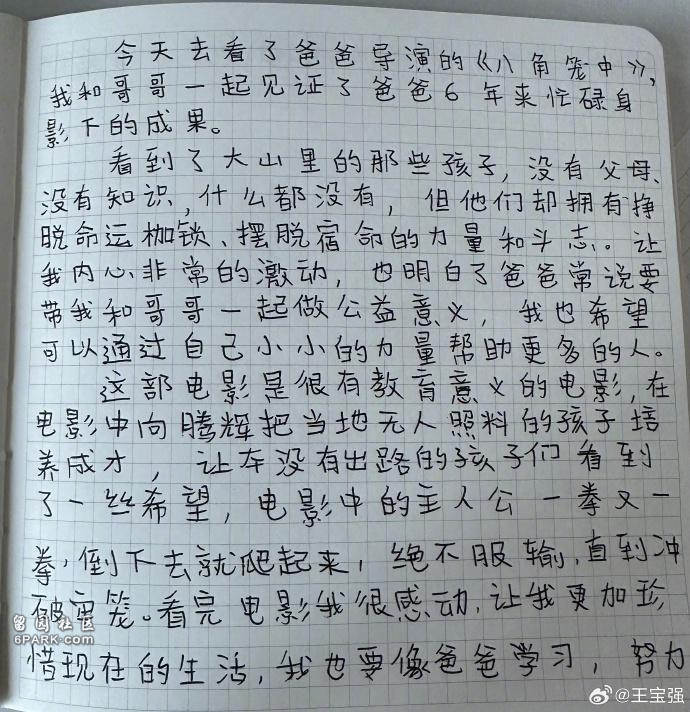 今天去看了爸爸导演的《八角笼中》,
我和哥哥一起见证了爸爸6年来忙碌身
影下的成果。
看到了大山里的那些孩子,没有父母、
没有知识,什么都没有,但他们却拥有挣
脱命运枷锁、摆脱宿命的力量和斗志。让
我内心非常的激动,也明白了爸爸常说要
带我和哥哥一起做公益意义,我也希望
可以通过自己小小的力量帮助更多的人。
这部电影是很有教育意义的电影,在
电影中向腾辉把当地无人照料的孩子培
养成才,让本没有出路的孩子们看到
了一丝希望,电影中的主人公一拳又一
拳,倒下去就爬起来,绝不服输,直到冲
破牢笼。看完电影我很感动,让我更加珍
惜现在的生活,我也要像爸爸学习,努力
留园社区
6PARK.COM
@王宝强